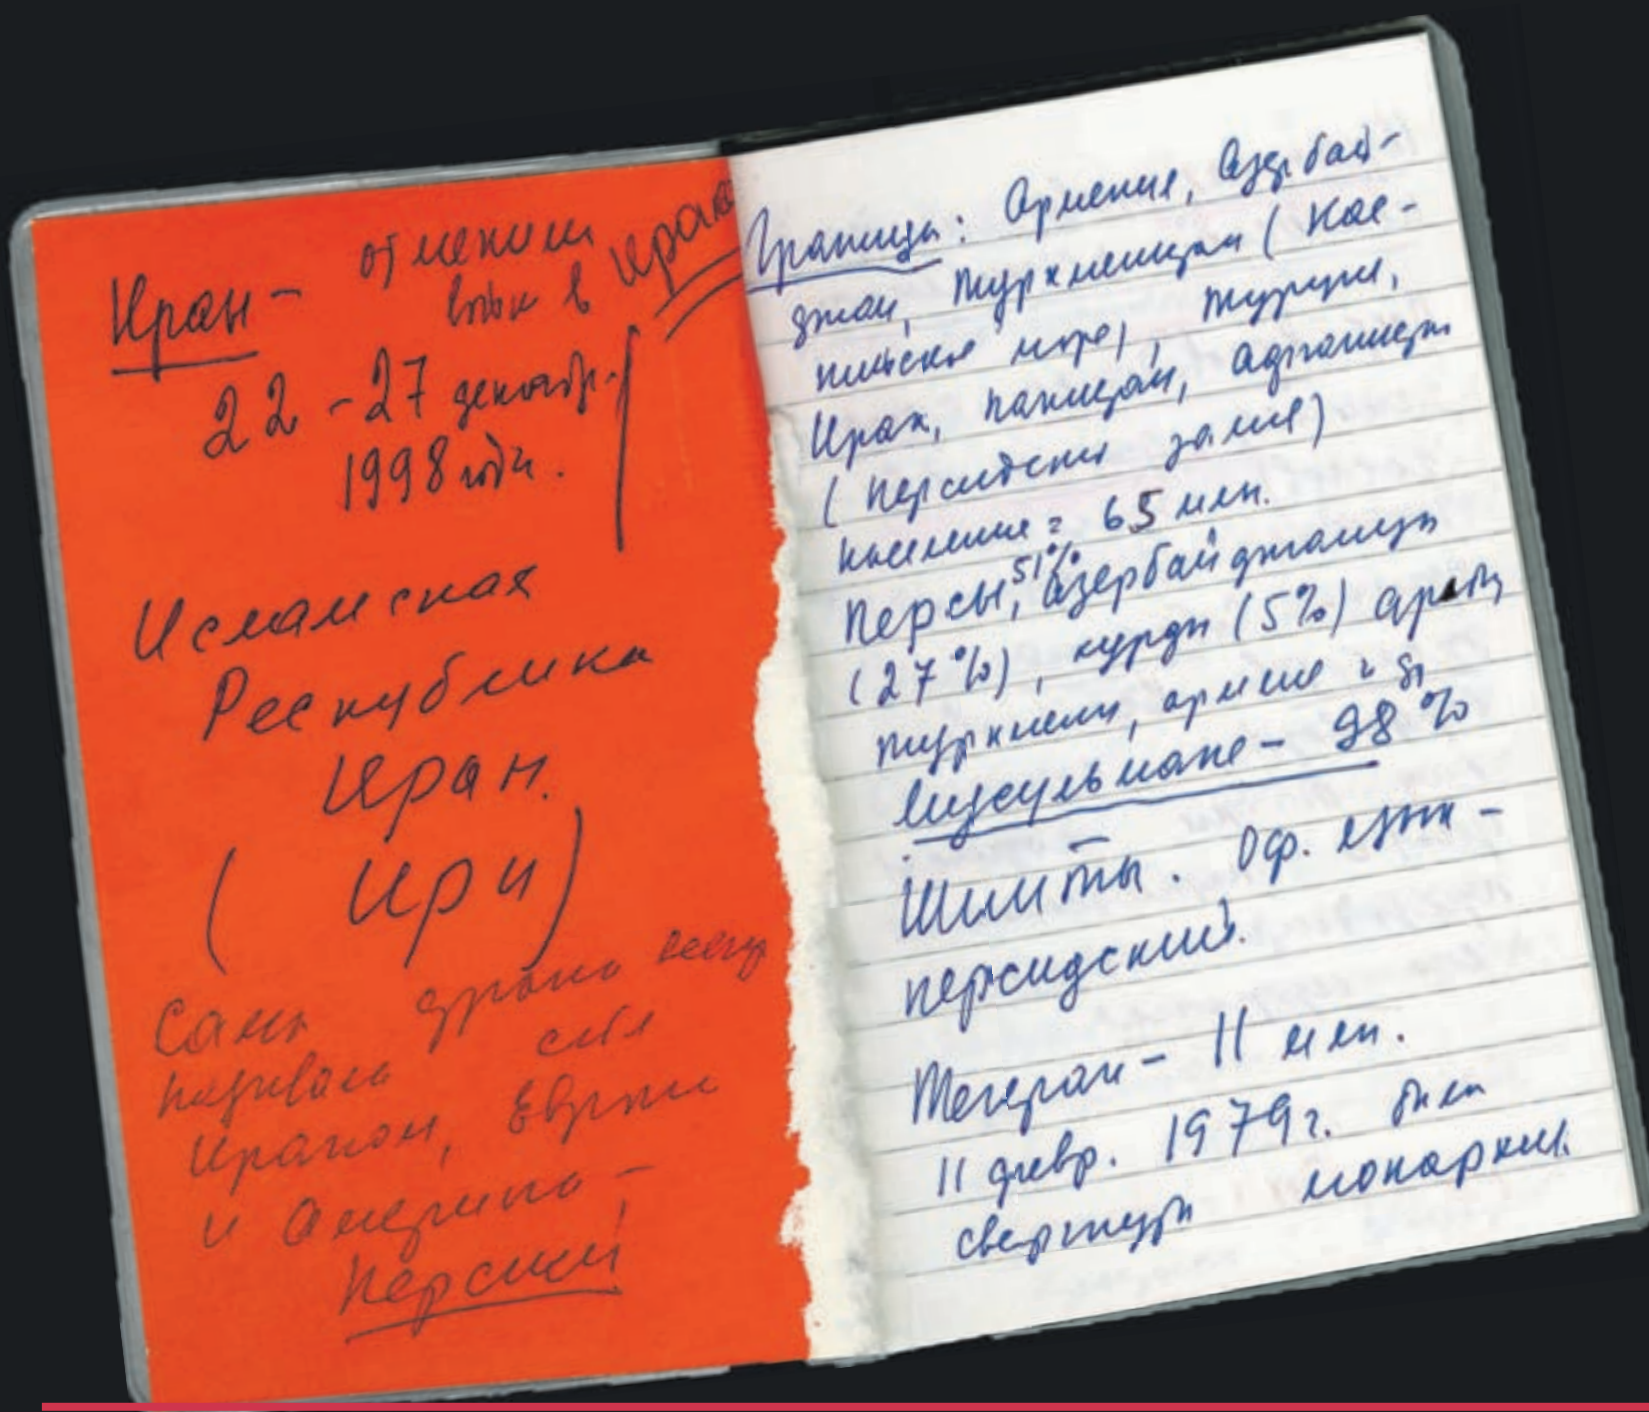 Иран - отменили
войн в Ираке
22 - 27 декабр.
1998 года.
Исламская
Республика
Иран.
( ИРИ )
Сама страна всегда
называла себя
Ираном, Европа
и Америка -
Персией
Границы: Армения, Азербай-
джан, Туркменистан (Кас-
пийское море), Турция,
Ирак, Пакистан, Афганистан
(Персидский залив)
Население = 65 млн.
Персы, 51% азербайджанцы
(27%), курды (5%) арабы,
туркмены, армяне и др
Мусульмане - 98%
Шииты. Оф. язык -
персидский.
Тегеран - 11 млн.
11 февр. 1979 г. была
свергнута монархия.